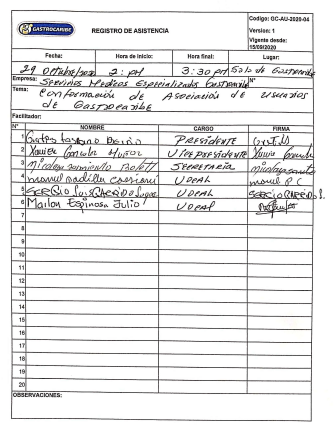 GASTROCARIBE
REGISTRO DE ASISTENCIA
Código: GC-AU-2020-04
Version: 1
Vigente desde:
15/09/2020
Fecha: Hora de Inicio: Hora final: Lugar:
29 Octubre/2020 2: PM 3:30 PM Sala de Gastrocaribe
Empresa: Servicios Medicos Especializados Gastrocaribe N°
Tema: Conformación de Asociación de usuarios
de Gastrocaribe
Facilitador:
N° NOMBRE CARGO FIRMA
1 PRESIDENTE
2 Xavier Gonzalez Muñoz VICEPRESIDENTE Xavier Gonzalez
3 Sarmiento SECRETARIA
4 Manuel Padilla VOCAL Manuel P C
5 SERGIO LUIS GARRIDO VOCAL SERGIO GARRIDO L.
6 Marlon Espinosa Julio VOCAL
7
8
9
10
11
12
13
14
15
16
17
18
19
20
OBSERVACIONES: